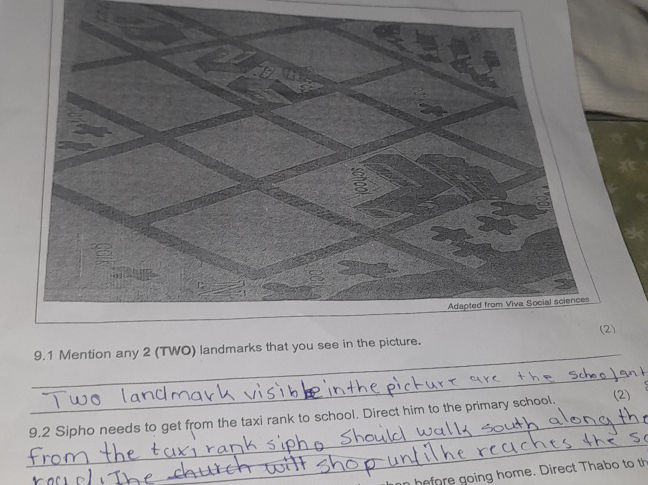 school
Adapted from Viva Social sciences
(2)
9.1 Mention any 2 (TWO) landmarks that you see in the picture.
Two landmark visible in the picture are the school an
(2)
9.2 Sipho needs to get from the taxi rank to school. Direct him to the primary school.
from the taxi rank sipho should walk south along the
road. The church will shop until he reaches the sc
before going home. Direct Thabo to th